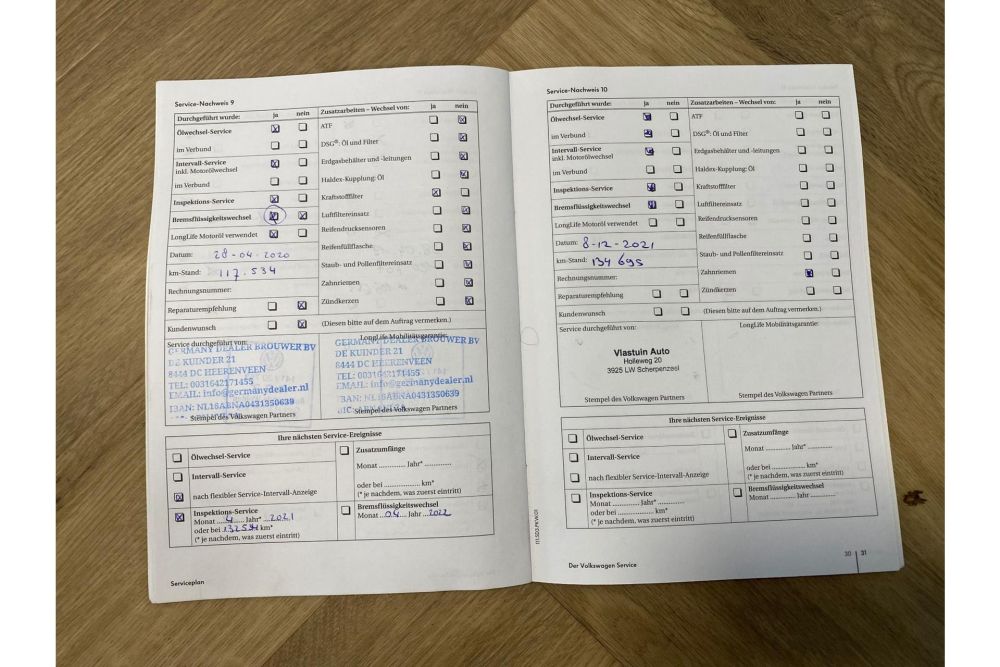 Service-Nachweis 9
Durchgeführt wurde: ja nein
Ölwechsel-Service
im Verbund
Intervall-Service
inkl. Motorölwechsel
im Verbund
Inspektions-Service
Bremsflüssigkeitswechsel
LongLife Motoröl verwendet
Datum: 28-04-2020
km-Stand: 117.534
Rechnungsnummer:
Reparaturempfehlung
Kundenwunsch
Zusatzarbeiten – Wechsel von: ja nein
ATF
DSG®: Öl und Filter
Erdgasbehälter und -leitungen
Haldex-Kupplung: Öl
Kraftstofffilter
Luftfiltereinsatz
Reifendrucksensoren
Reifenfüllflasche
Staub- und Pollenfiltereinsatz
Zahnriemen
Zündkerzen
(Diesen bitte auf dem Auftrag vermerken.)
Service durchgeführt von:
GERMANY DEALER BROUWER BV
DE KUINDER 21
8444 DC HEERENVEEN
TEL: 0031642171455
EMAIL: info@germanydealer.nl
IBAN: NL16ABNA0431350639
Stempel des Volkswagen Partners
LongLife Mobilitätsgarantie:
GERMANY DEALER BROUWER BV
DE KUINDER 21
8444 DC HEERENVEEN
TEL: 0031642171455
EMAIL: info@germanydealer.nl
IBAN: NL16ABNA0431350639
Stempel des Volkswagen Partners
Ihre nächsten Service-Ereignisse
Ölwechsel-Service
Intervall-Service
nach flexibler Service-Intervall-Anzeige
Inspektions-Service
Monat 4 Jahr* 2021
oder bei 132534 km*
(* je nachdem, was zuerst eintritt)
Zusatzumfänge
Monat Jahr*
oder bei km*
(* je nachdem, was zuerst eintritt)
Bremsflüssigkeitswechsel
Monat 04 Jahr 2022
Serviceplan
Service-Nachweis 10
Durchgeführt wurde: ja nein
Ölwechsel-Service
im Verbund
Intervall-Service
inkl. Motorölwechsel
im Verbund
Inspektions-Service
Bremsflüssigkeitswechsel
LongLife Motoröl verwendet
Datum: 8-12-2021
km-Stand: 134695
Rechnungsnummer:
Reparaturempfehlung
Kundenwunsch
Zusatzarbeiten – Wechsel von: ja nein
ATF
DSG®: Öl und Filter
Erdgasbehälter und -leitungen
Haldex-Kupplung: Öl
Kraftstofffilter
Luftfiltereinsatz
Reifendrucksensoren
Reifenfüllflasche
Staub- und Pollenfiltereinsatz
Zahnriemen
Zündkerzen
(Diesen bitte auf dem Auftrag vermerken.)
Service durchgeführt von:
Vlastuin Auto
Holleweg 20
3925 LW Scherpenzeel
Stempel des Volkswagen Partners
LongLife Mobilitätsgarantie:
Stempel des Volkswagen Partners
Ihre nächsten Service-Ereignisse
Ölwechsel-Service
Intervall-Service
nach flexibler Service-Intervall-Anzeige
Inspektions-Service
Monat Jahr*
oder bei km*
(* je nachdem, was zuerst eintritt)
Zusatzumfänge
Monat Jahr*
oder bei km*
(* je nachdem, was zuerst eintritt)
Bremsflüssigkeitswechsel
Monat Jahr
Der Volkswagen Service
30 31